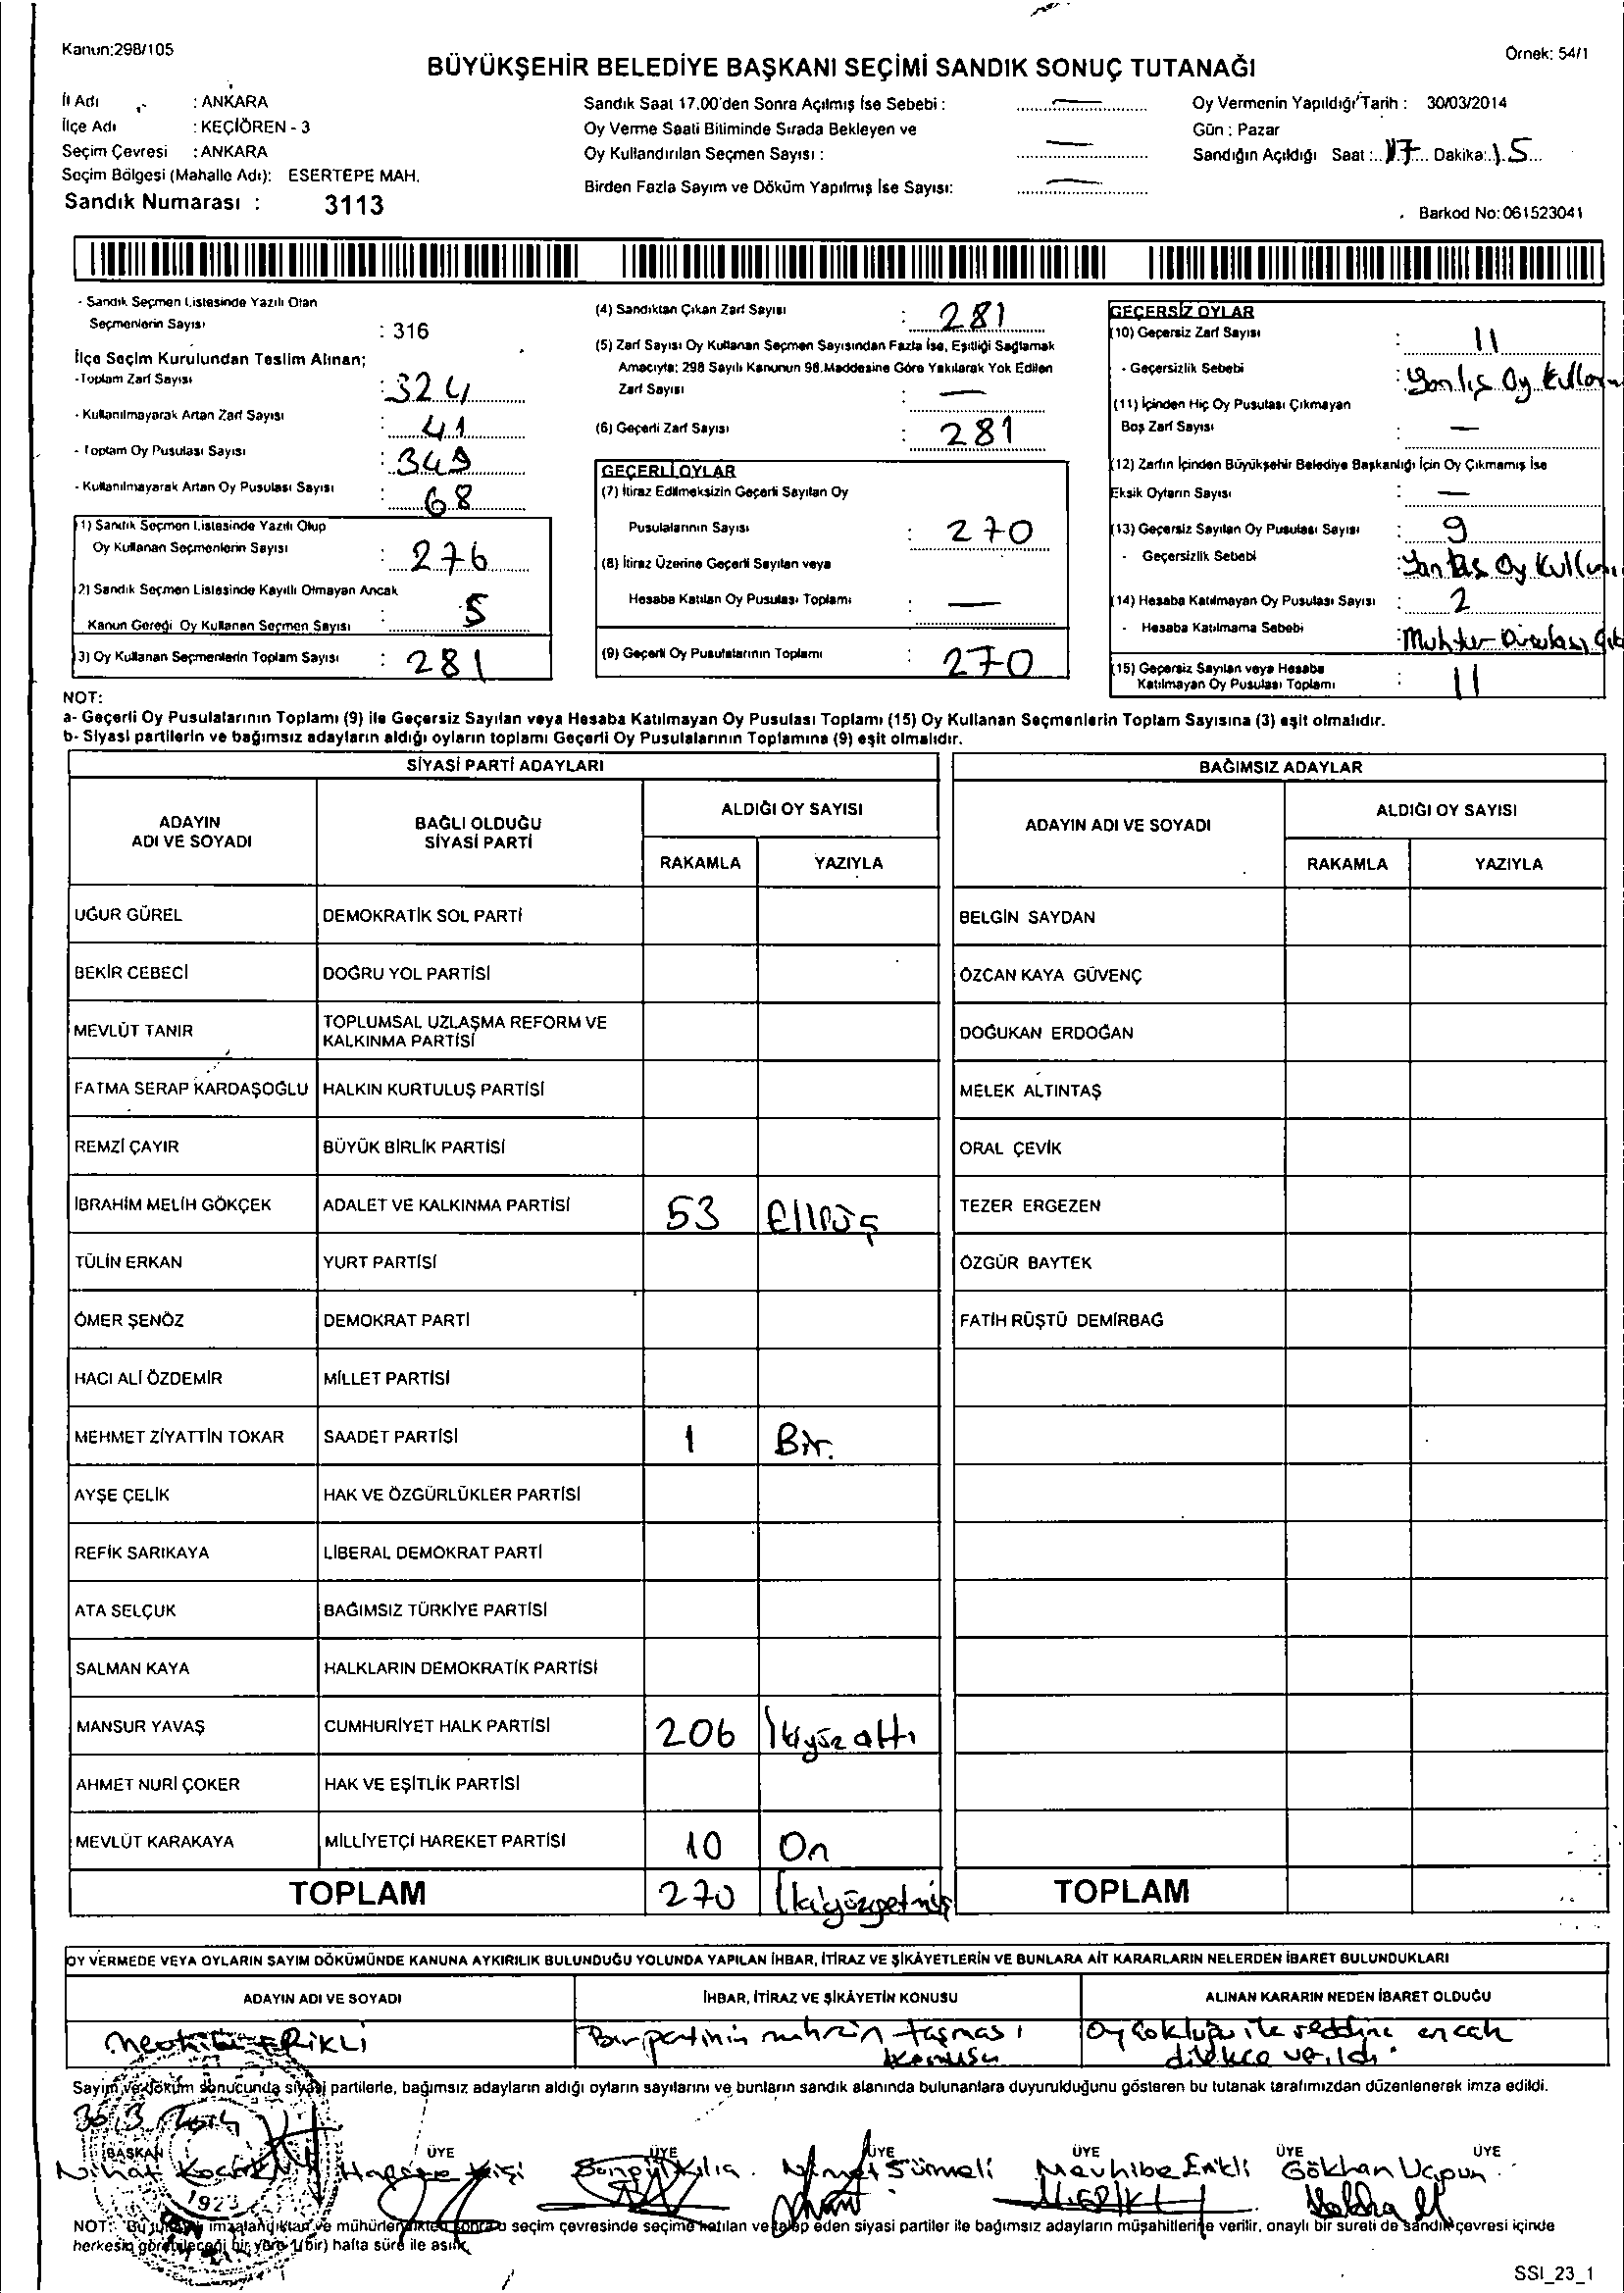 Kanun:298/105
Örnek: 54/1
BÜYÜKŞEHİR BELEDİYE BAŞKANI SEÇİMİ SANDIK SONUÇ TUTANAĞI
İl Adı : ANKARA
İlçe Adı : KEÇİÖREN - 3
Seçim Çevresi : ANKARA
Seçim Bölgesi (Mahalle Adı): ESERTEPE MAH.
Sandık Numarası : 3113
Sandık Saat 17.00'den Sonra Açılmış İse Sebebi : —
Oy Verme Saati Bitiminde Sırada Bekleyen ve
Oy Kullandırılan Seçmen Sayısı : —
Birden Fazla Sayım ve Döküm Yapılmış İse Sayısı: —
Oy Vermenin Yapıldığı Tarih : 30/03/2014
Gün : Pazar
Sandığın Açıldığı Saat : 17 Dakika: 15
Barkod No: 061523041
- Sandık Seçmen Listesinde Yazılı Olan
Seçmenlerin Sayısı : 316
İlçe Seçim Kurulundan Teslim Alınan;
-Toplam Zarf Sayısı : 324
- Kullanılmayarak Artan Zarf Sayısı : 41
- Toplam Oy Pusulası Sayısı : 349
- Kullanılmayarak Artan Oy Pusulası Sayısı : 68
(1) Sandık Seçmen Listesinde Yazılı Olup
Oy Kullanan Seçmenlerin Sayısı : 276
(2) Sandık Seçmen Listesinde Kayıtlı Olmayan Ancak
Kanun Gereği Oy Kullanan Seçmen Sayısı : 5
(3) Oy Kullanan Seçmenlerin Toplam Sayısı : 281
(4) Sandıktan Çıkan Zarf Sayısı : 281
(5) Zarf Sayısı Oy Kullanan Seçmen Sayısından Fazla İse, Eşitliği Sağlamak
Amacıyla; 298 Sayılı Kanunun 98.Maddesine Göre Yakılarak Yok Edilen
Zarf Sayısı : —
(6) Geçerli Zarf Sayısı : 281
GEÇERLİ OYLAR
(7) İtiraz Edilmeksizin Geçerli Sayılan Oy
Pusulalarının Sayısı : 270
(8) İtiraz Üzerine Geçerli Sayılan veya
Hesaba Katılan Oy Pusulası Toplamı : —
(9) Geçerli Oy Pusulalarının Toplamı : 270
GEÇERSİZ OYLAR
(10) Geçersiz Zarf Sayısı : 11
- Geçersizlik Sebebi : Yanlış Oy
(11) İçinden Hiç Oy Pusulası Çıkmayan
Boş Zarf Sayısı : —
(12) Zarfın İçinden Büyükşehir Belediye Başkanlığı İçin Oy Çıkmamış İse
Eksik Oyların Sayısı : —
(13) Geçersiz Sayılan Oy Pusulası Sayısı : 9
- Geçersizlik Sebebi : Oy
(14) Hesaba Katılmayan Oy Pusulası Sayısı : 2
- Hesaba Katılmama Sebebi : Muhtar
(15) Geçersiz Sayılan veya Hesaba
Katılmayan Oy Pusulası Toplamı : 11
NOT:
a- Geçerli Oy Pusulalarının Toplamı (9) ile Geçersiz Sayılan veya Hesaba Katılmayan Oy Pusulası Toplamı (15) Oy Kullanan Seçmenlerin Toplam Sayısına (3) eşit olmalıdır.
b- Siyasi partilerin ve bağımsız adayların aldığı oyların toplamı Geçerli Oy Pusulalarının Toplamına (9) eşit olmalıdır.
SİYASİ PARTİ ADAYLARI
ADAYIN ADI VE SOYADI
BAĞLI OLDUĞU SİYASİ PARTİ
ALDIĞI OY SAYISI
RAKAMLA YAZIYLA
UĞUR GÜREL DEMOKRATİK SOL PARTİ
BEKİR CEBECİ DOĞRU YOL PARTİSİ
MEVLÜT TANIR TOPLUMSAL UZLAŞMA REFORM VE
KALKINMA PARTİSİ
FATMA SERAP KARDAŞOĞLU HALKIN KURTULUŞ PARTİSİ
REMZİ ÇAYIR BÜYÜK BİRLİK PARTİSİ
İBRAHİM MELİH GÖKÇEK ADALET VE KALKINMA PARTİSİ 53 Elliüç
TÜLİN ERKAN YURT PARTİSİ
ÖMER ŞENÖZ DEMOKRAT PARTİ
HACI ALİ ÖZDEMİR MİLLET PARTİSİ
MEHMET ZİYATTİN TOKAR SAADET PARTİSİ 1 Bir.
AYŞE ÇELİK HAK VE ÖZGÜRLÜKLER PARTİSİ
REFİK SARIKAYA LİBERAL DEMOKRAT PARTİ
ATA SELÇUK BAĞIMSIZ TÜRKİYE PARTİSİ
SALMAN KAYA HALKLARIN DEMOKRATİK PARTİSİ
MANSUR YAVAŞ CUMHURİYET HALK PARTİSİ 206 İkiyüz altı
AHMET NURİ ÇOKER HAK VE EŞİTLİK PARTİSİ
MEVLÜT KARAKAYA MİLLİYETÇİ HAREKET PARTİSİ 10 On
TOPLAM 270 İkiyüzyetmiş
BAĞIMSIZ ADAYLAR
ADAYIN ADI VE SOYADI
ALDIĞI OY SAYISI
RAKAMLA YAZIYLA
BELGİN SAYDAN
ÖZCAN KAYA GÜVENÇ
DOĞUKAN ERDOĞAN
MELEK ALTINTAŞ
ORAL ÇEVİK
TEZER ERGEZEN
ÖZGÜR BAYTEK
FATİH RÜŞTÜ DEMİRBAĞ
TOPLAM
OY VERMEDE VEYA OYLARIN SAYIM DÖKÜMÜNDE KANUNA AYKIRILIK BULUNDUĞU YOLUNDA YAPILAN İHBAR, İTİRAZ VE ŞİKÂYETLERİN VE BUNLARA AİT KARARLARIN NELERDEN İBARET BULUNDUKLARI
ADAYIN ADI VE SOYADI
İHBAR, İTİRAZ VE ŞİKÂYETİN KONUSU
ALINAN KARARIN NEDEN İBARET OLDUĞU
ERİKLİ
Bir partinin mührün taşması
konusu
Oy çokluğu ile reddine ancak
dilekçe verildi.
Sayım ve döküm sonucunda siyasi partilerle, bağımsız adayların aldığı oyların sayılarını ve bunların sandık alanında bulunanlara duyurulduğunu gösteren bu tutanak tarafımızdan düzenlenerek imza edildi.
30/3/2014
BAŞKAN ÜYE ÜYE ÜYE ÜYE ÜYE ÜYE
Nihat Kılıç Sürmeli Mevhibe Erikli Gökhan
1923
NOT: Bu tutanak imzalandıktan ve mühürlendikten sonra o seçim çevresinde seçime katılan ve talep eden siyasi partiler ile bağımsız adayların müşahitlerine verilir, onaylı bir sureti de sandık çevresi içinde
herkesin görebileceği bir yere 1(bir) hafta süre ile asılır.
SSI_23_1